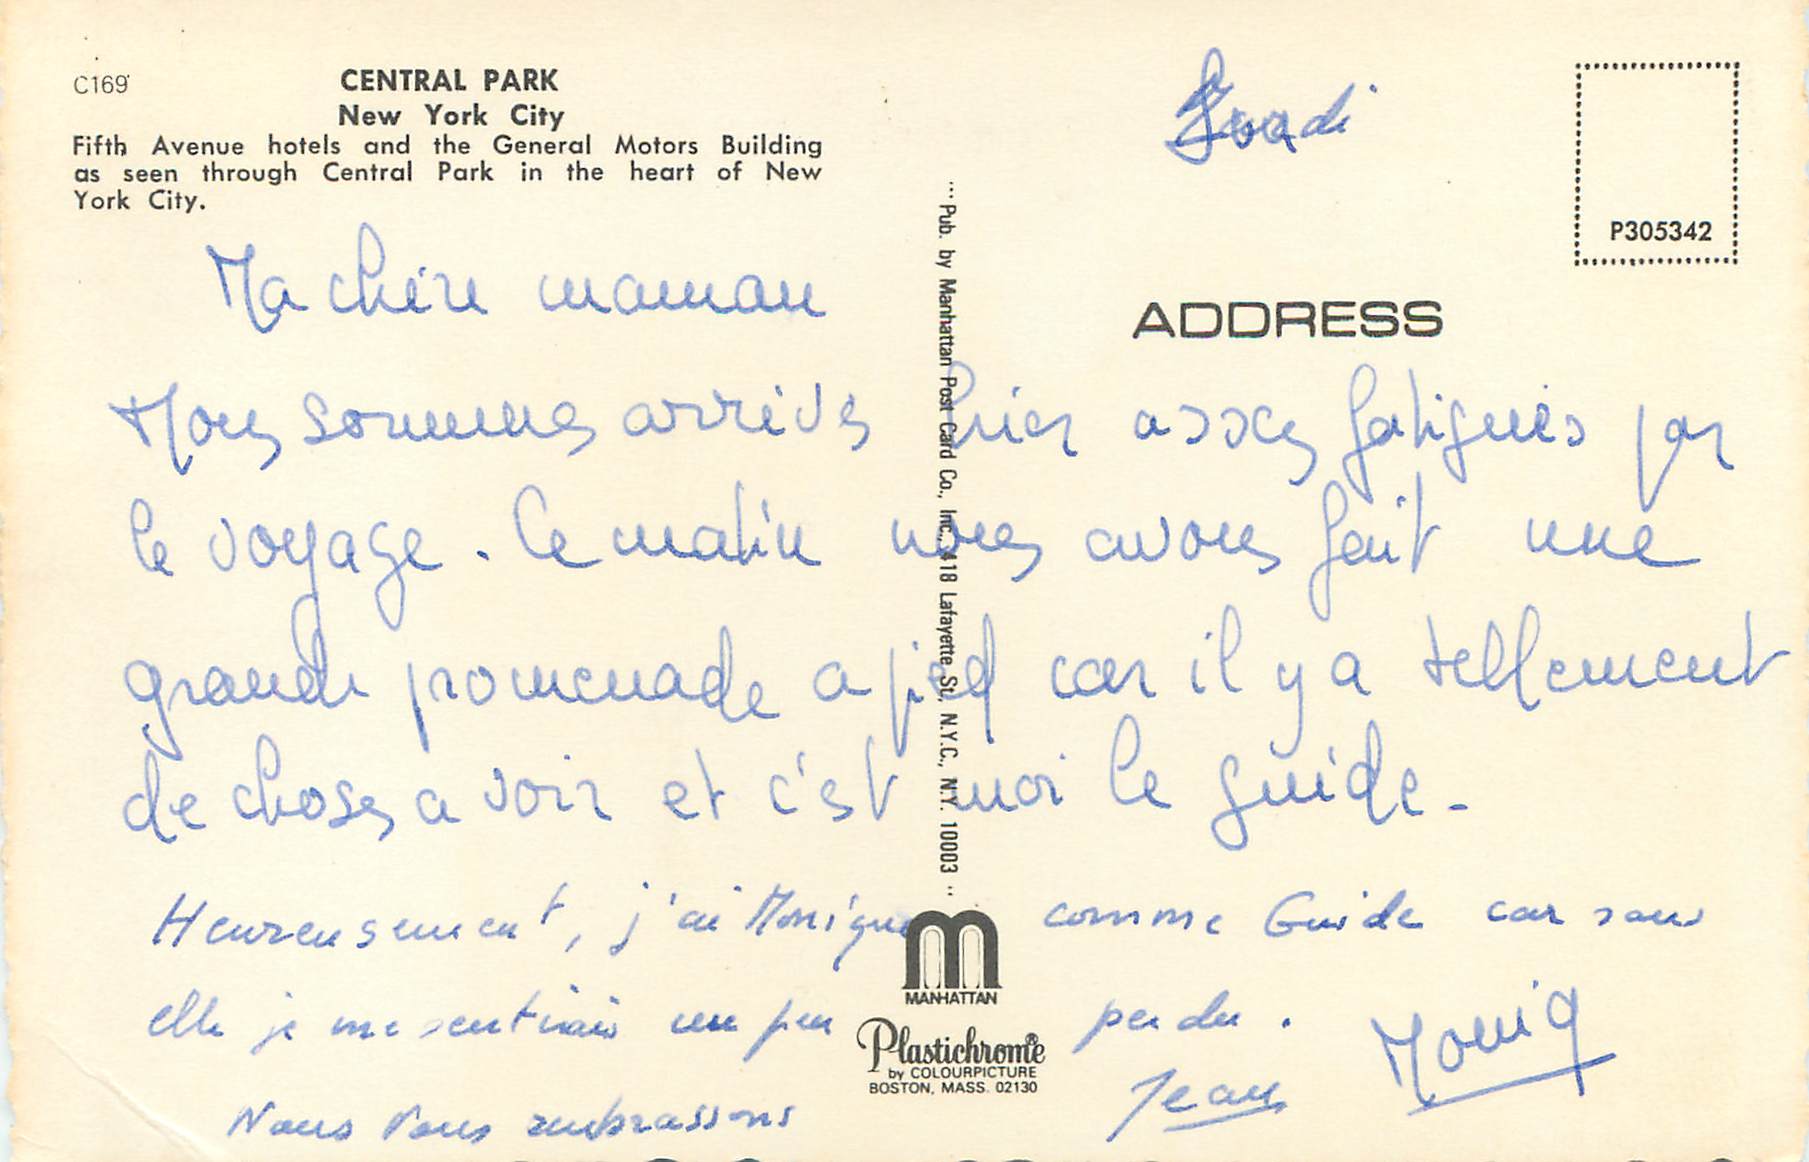 C169
CENTRAL PARK
New York City
Fifth Avenue hotels and the General Motors Building
as seen through Central Park in the heart of New
York City.
P305342
ADDRESS
Ma chère maman
Nous sommes arrivés hier assez fatigués par
le voyage. Ce matin nous avons fait une
grande promenade a pied car il y a tellement
de choses a voir et c'est moi le guide -
Heureusement, j'ai Monique comme Guide car sans
elle je me sentirais un peu perdu.
Nous vous embrassons
Jean
Moniq
Pub. by Manhattan Post Card Co., Inc., 418 Lafayette St., N.Y.C., N.Y. 10003
MANHATTAN
Plastichrome®
by COLOURPICTURE
BOSTON, MASS. 02130